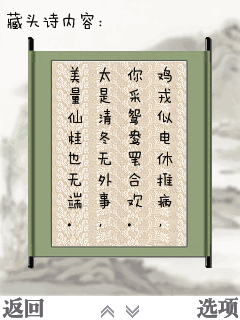 藏头诗内容:
鸡戎似电休推病,
你采鸳鸯罢合欢。
太是清冬无外事,
美量仙娃也无端。
返回
选项